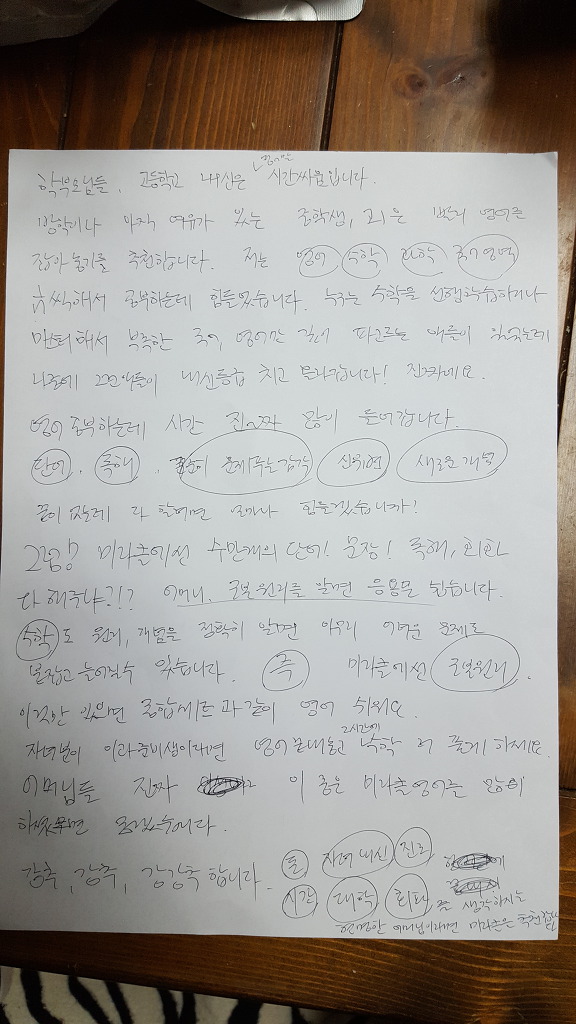 학부모님들, 고등학교 내신은 시간싸움입니다.
방학이나 아직 여유가 있는 중학생, 고1은 빨리 영어를
잡아놓기를 추천합니다. 저는 영어 수학 과학 국어영역
씩해서 공부하는데 힘들었습니다. 누구는 수학을 선행학습하거나
마스터해서 부족한 국어, 영어만 깊게 파고드는 애들이 있었는데
나중에 그런애들이 내신등급 치고 올라갑니다! 진짜에요.
영어 공부하는데 시간 진~짜 많이 들어갑니다.
단어, 독해, 문제푸는감각 새로운 개념
끝이 없는데 다 할려면 얼마나 힘들겠습니까!
그럼? 미라클에선 수만개의 단어! 문장! 독해, 회화
다 해주냐?!? 어머니, 근본원리를 알면 응용은 쉽습니다.
수학도 원리, 개념을 정확히 알면 아무리 어려운 문제도
붙잡고 늘어질수 있습니다. 즉 미라클에선 근본원리.
이것만 있으면 종합세트과같이 영어 쉬워요.
자녀분이 이과준비생이라면 영어 끝내놓고 2시간에 수학 더 풀게 하세요.
어머님들 진짜 이 좋은 미라클영어를 많이
하셨으면 좋겠습니다.
강추, 강추, 강강추 합니다.
돈 자녀 내신 진로
시간 대학 회화 를 생각하시는
현명한 어머님이라면 미라클은 추천합니다